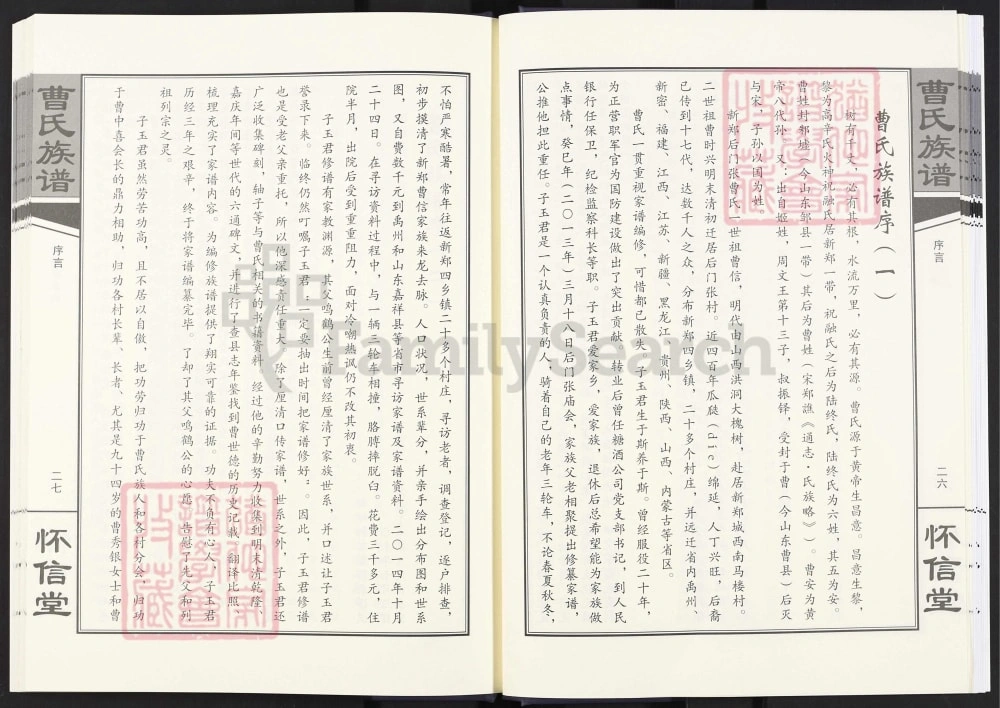 曹氏族谱
序言
二六
怀信堂
曹氏族谱序（一）
树有千丈，必有其根，水流万里，必有其源。曹氏源于黄帝生昌意。昌意生黎，
黎为高辛氏火神祝融氏居新郑一带，祝融氏之后为陆终氏，陆终氏为六姓，其五为安。
曹姓封邾墟（今山东邹县一带）其后为曹姓（宋郑樵《通志·氏族略》）。曹安为黄
帝八代孙。又：出自姬姓，周文王第十三子，叔振铎，受封于曹（今山东曹县）后灭
与宋，子孙以国为姓。
新郑后门张曹氏一世祖曹信，明代由山西洪洞大槐树，赴居新郑城西南马楼村。
二世祖曹时兴明末清初迁居后门张村。近四百年瓜瓞（die）绵延，人丁兴旺，后裔
已传到十七代，达数千人之众，分布新郑四乡镇，二十多个村庄，并远迁省内禹州、
新密、福建、江西、江苏、新疆、黑龙江、贵州、陕西、山西、内蒙古等省区。
曹氏一贯重视家谱编修，可惜都已散失。子玉君生于斯养于斯。曾经服役二十年，
为正营职军官为国防建设做出了突出贡献。转业后曾任糖酒公司党支部书记，到人民
银行任保卫，纪检监察科长等职。子玉君爱家乡，爱家族，退休后总希望能为家族做
点事情，癸巳年（二〇一三年）三月十八日后门张庙会，家族父老相聚提出修纂家谱，
公推他担此重任。子玉君是一个认真负责的人，骑着自己的老年三轮车，不论春夏秋冬，
不怕严寒酷暑，常年往返新郑四乡镇二十多个村庄，寻访老者，调查登记，逐户排查，
初步摸清了新郑曹信家族来龙去脉。人口状况，世系辈分，并亲手绘出分布图和世系
图，又自费数千元到禹州和山东嘉祥县等省市寻访家谱及家谱资料。二〇一四年十月
二十四日。在寻访资料过程中，与一辆三轮车相撞，胳膊摔脱臼。花费三千多元，住
院半月，出院后受到重重阻力，面对冷嘲热讽仍不改其初衷。
子玉君修谱有家教渊源，其父鸣鹤公生前曾经厘清了家族世系，并口述让子玉君
誉录下来。临终仍然叮嘱子玉君“一定要抽出时间把家谱修好”。因此，子玉君修谱
也是受老父亲重托，所以他深感责任重大。除了厘清口传家谱，世系之外，子玉君还
广泛收集碑刻，轴子等与曹氏相关的书籍资料。经过他的辛勤努力收集到明末清乾隆、
嘉庆年间等世代的六通碑文，并进行了查县志年鉴找到曹世德的历史记载，翻译比照，
梳理充实了家谱内容。为编修族谱提供了翔实可靠的证据。功夫不负有心人，子玉君
历经三年之艰辛，终于将家谱编纂完毕。了却了其父鸣鹤公的心愿，告慰了先父和列
祖列宗之灵。
子玉君虽然劳苦功高，且不居以自傲，把功劳归功于曹氏族人和各村分会，归功
于曹中喜会长的鼎力相助，归功各村长辈、长者，尤其是九十四岁的曹秀银女士和曹
曹氏族谱
序言
二七
怀信堂
FamilySearch